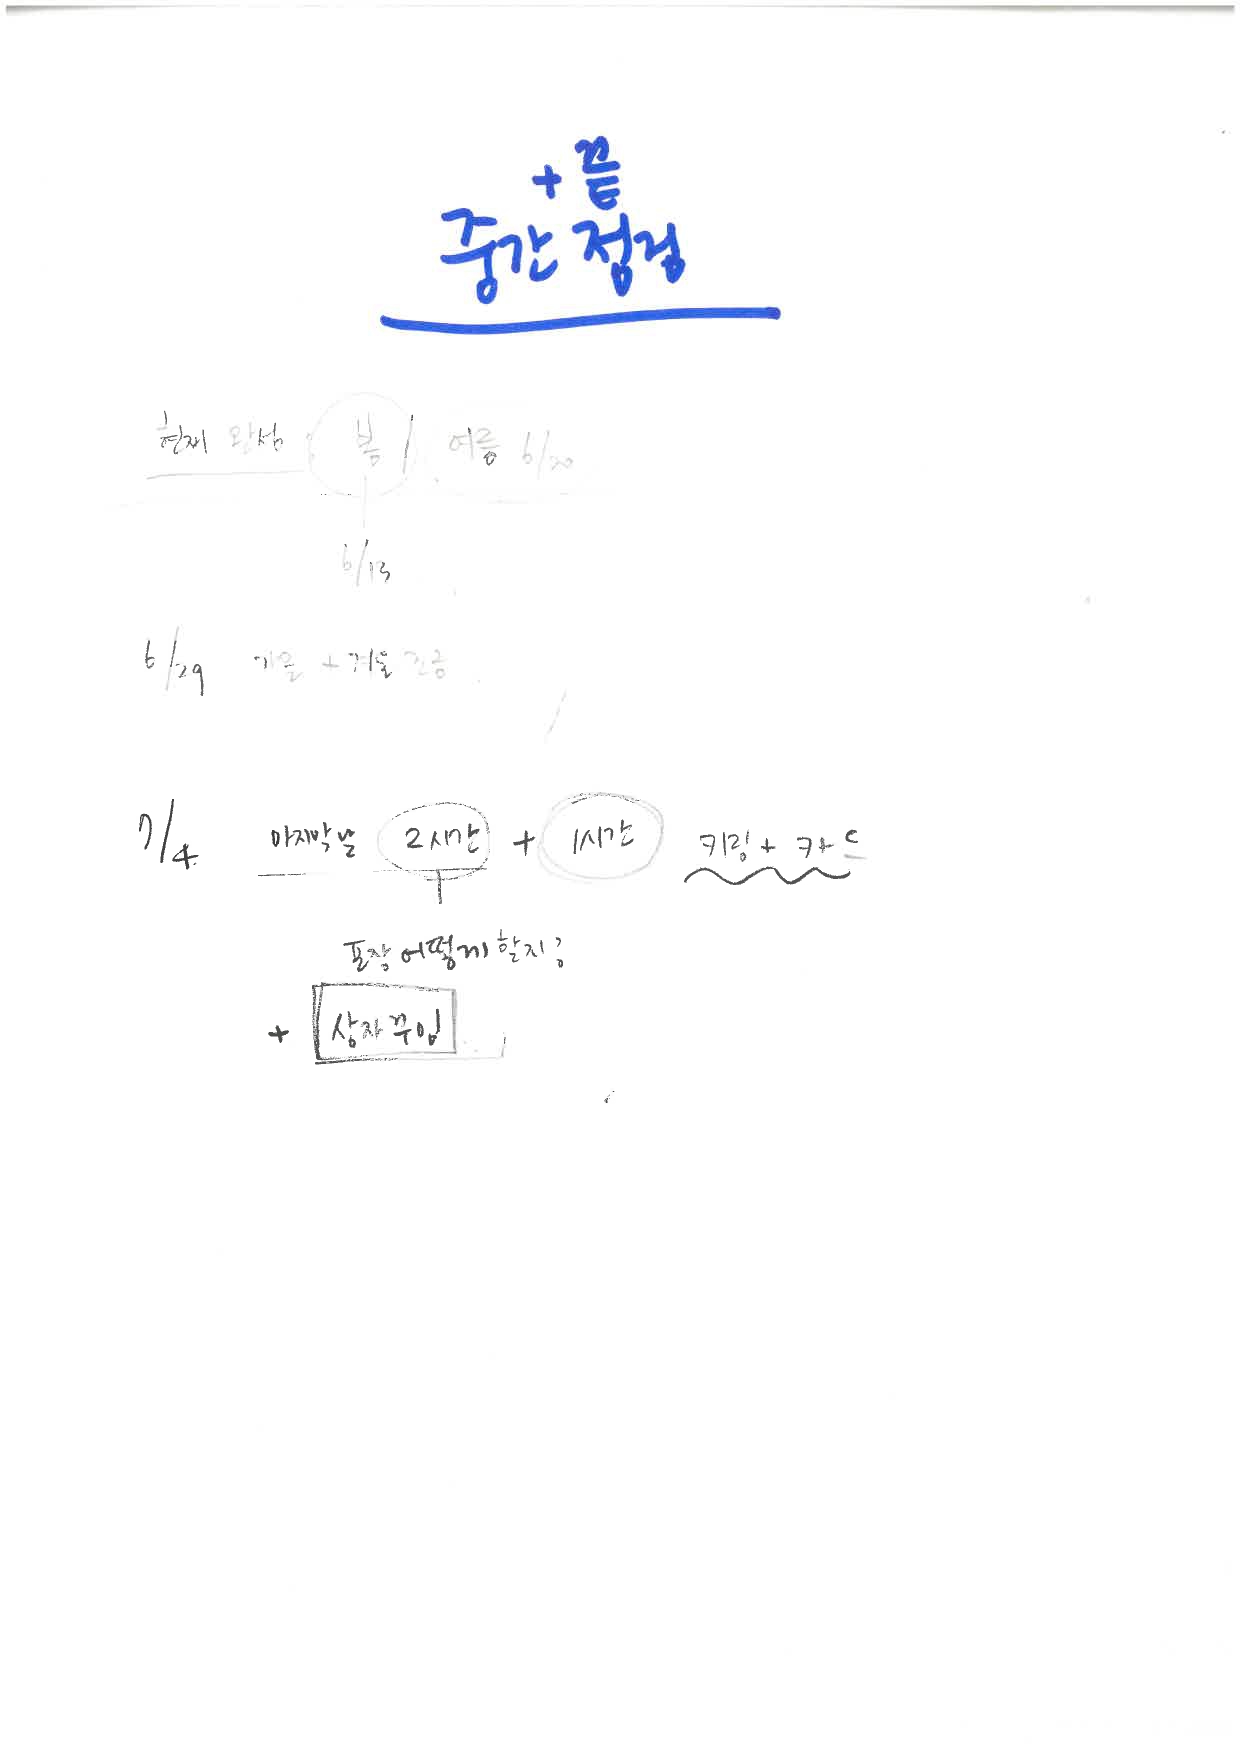 + 끝
중간 점검
현재 완성 : 봄 / 여름 6/20
6/13
6/29 가을 + 겨울 조금
7/4 마지막날 2시간 + 1시간 키링 + 카드
포장 어떻게 할지?
+ 상자 꾸밈